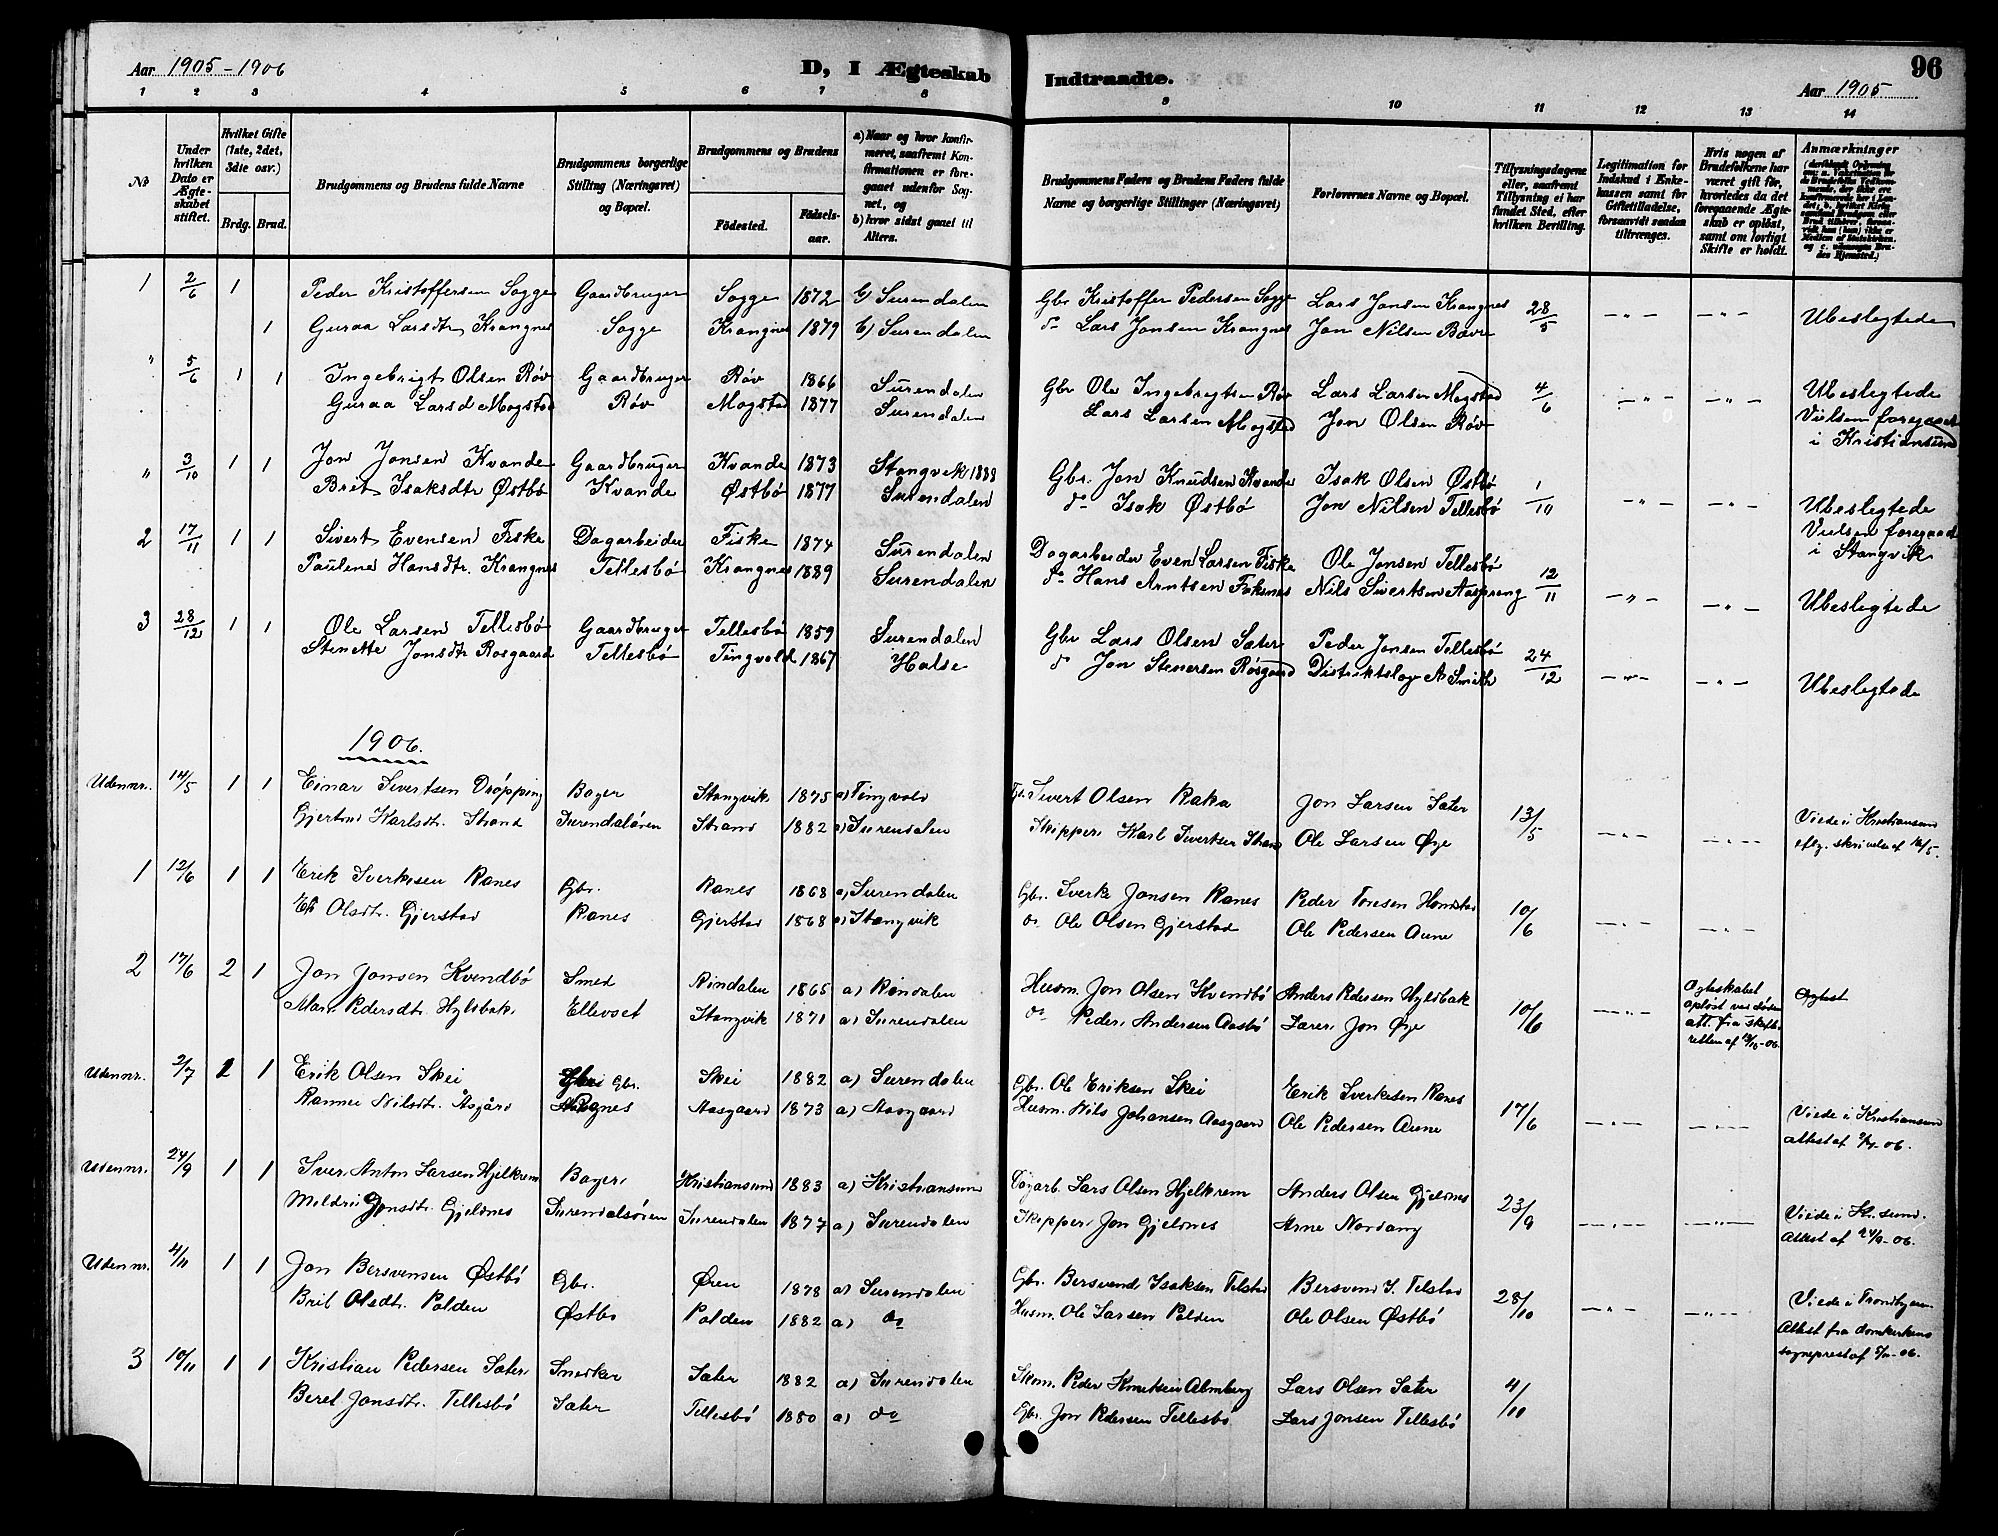 Aar 1905-1906
D, I Ægteskab Indtraadte.
Aar 1905
96
1 2 3 4 5 6 7 8 9 10 11 12 13 14
No
Under hvilken Dato er Ægteskabet stiftet.
Hvilket Gifte (1ste, 2det, 3die osv.)
Brdg. Brud.
Brudgommens og Brudens fulde Navne
Brudgommens borgerlige Stilling (Næringsvei) og Bopæl.
Brudgommens og Brudens
Födested. Födsels-aar.
a) Naar og hvor konfirmeret, saafremt Konfirmationen er foregaaet udenfor Sognet, og
b) hvor sidst gaaet til Alters.
Brudgommens Faders og Brudens Faders fulde Navne og borgerlige Stillinger (Næringsvei)
Forlovernes Navne og Bopæl.
Tillysningsdagene eller, saafremt Tillysning ei har fundet Sted, efter hvilken Bevilling.
Legitimation for Indskud i Enkekassen samt for Giftetilladelse, forsaavidt saadan tiltrænges.
Hvis nogen af Brudefolkene har været gift för, hvorledes da det foregaaende Ægteskab er oplöst, samt om lovligt Skifte er holdt.
Anmærkninger
1 2/6 1 Peder Kristoffersen Sogge Gaardbruger Sogge 1872 b) Surendalen Gbr Kristoffer Pedersen Sogge Lars Jonsen Krangnes 28/5 -"- -"- Ubeslegtede
1 Guraa Larsdtr Krangnes Sogge Krangnes 1879 b) Surendalen do Lars Jonsen Krangnes Jon Nilsen Bævre
" 5/6 1 1 Ingebrigt Olsen Røv Gaardbruger Røv 1866 Surendalen Gbr Ole Ingebrigtsen Røv Lars Larsen Mogstad 4/6 -"- -"- Ubeslegtede
Guraa Larsd Mogstad Røv Mogstad 1877 Surendalen Lars Larsen Mogstad Jon Olsen Røv Vielsen foregaaet
i Kristiansund
" 3/10 1 1 Jon Jonsen Kvande Gaardbruger Kvande 1873 Stangvik 1888 Gbr. Jon Knudsen Kvande Isak Olsen Østbø 1/10 -"- -"- Ubeslegtede
Brit Isaksdtr Østbø Kvande Østbø 1877 Surendalen do Isak Østbø Jon Nilsen Tellesbø Vielsen foregaaet
i Stangvik
2 17/11 1 1 Sivert Evensen Fiske Dagarbeider Fiske 1874 Surendalen Dagarbeider Even Larsen Fiske Ole Jonsen Tellesbø 12/11 -"- -"- Ubeslegtede
Paulena Hansdtr. Krangnes Tellesbø Krangnes 1889 Surendalen do Hans Arntsen Nils Sivertsen
3 28/12 1 1 Ole Larsen Tellesbø Gaardbruger Tellesbø 1859 Surendalen Gbr Lars Olsen Sæter Peder Jonsen Tellesbø 24/12 -"- -"- Ubeslegtede
Stenette Jonsdtr Rosgaard Tellesbø Tingvold 1867 Halse do Jon Stenersen Røsgaard Distriktslæge A Smith
1906.
Uden nr. 14/5 1 1 Einar Sivertsen Drøpping Bager Stangvik 1875 a) Tingvold Sivert Olsen Raka Jon Larsen Sæter 13/5 -"- -"- Viede i Kristiansund
Gjertrud Karlsdtr. Strand Surendaløren Strand 1882 a) Surendalen Skipper Karl Sivertsen Strand Ole Larsen Øye eflg. skrivelse af 16/5.
1 12/6 1 1 Erik Sverkesen Ranes Gbr. Ranes 1868 a) Surendalen Gbr. Sverke Jonsen Ranes Peder Toresen Harstad 10/6 -"- -"-
Eli Olsdtr. Gjerstad Ranes Gjerstad 1868 a) Stangvik do Ole Olsen Gjerstad Ole Pedersen Aune
2 17/6 2 1 Jon Jonsen Kvendbø Smed Rindalen 1865 a) Rindalen Husm. Jon Olsen Kvendbø Anders Pedersen Hyldbak 10/6 -"- Ægteskabet opløst ved døden att. fra skifteretten af 13/10-06
Mari Pedersdtr. Hyldbak Ellevset Stangvik 1871 a) Surendalen do Peder Andersen Aasbø Lærer Jon Øye
Uden nr. 2/7 1 1 Erik Olsen Skei Gbr. Skei 1882 a) Surendalen Gbr. Ole Eriksen Skei Erik Sverkesen Ranes 17/6 -"- -"- Viede i Kristiansund
Nilsdtr. Åsgård Aasgaard 1873 a) Aasgaard Husm. Nils Johansen Aasgaard Ole Pedersen Aune attest af 2/7-06.
Uden nr. 24/9 1 1 Iver Anton Larsen Hjelkrem Bager Kristiansund 1883 a) Kristiansund Lars Olsen Hjelkrem Anders Olsen Gjeldnes 23/9 -"- -"- Viede i Kr.sund.
Mildrid Jonsdtr. Gjeldnes Surendalsøren Surendalen 1877 a) Surendalen Skipper Jon Gjeldnes Arne Nordang Attest af 24/9-06.
Uden nr. 4/11 1 1 Jon Bersvensen Østbø Gbr. Øren 1878 a) Surendalen Gbr. Bersvend Isaksen Telstad Bersvend I. Telstad 28/10 -"- -"- Viede i Trondhjem
Brit Olsdtr. Polden Østbø Polden 1882 a) do Husm. Ole Larsen Polden Ole Olsen Østbø Attest fra domkirkens
sogneprest af 5/11-06.
3 10/11 1 1 Kristian Pedersen Sæter Snedker Sæter 1882 a) Surendalen Skom. Peder Knutsen Almberg Lars Olsen Sæter 4/11 
Beret Jonsdtr. Tellesbø Sæter Tellesbø 1880 a) do Gbr. Jon Pedersen Tellesbø Lars Jonsen Tellesbø